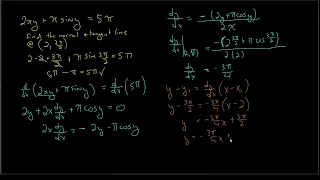 2xy + π sin y = 5π
Find the normal + tangent line
@ (2, 3π/2)
2·2·3π/2 + π sin 3π/2 = 5π
6π − π = 5π ✓
d/dx (2xy) + d/dx (π sin y) = d/dx (5π)
2y + 2x dy/dx + π cos y = 0
2x dy/dx = −2y − π cos y
dy/dx = −(2y + π cos y)/2x
dy/dx | = −(2·3π/2 + π cos 3π/2)/2(2)
= −3π/4
y − y₁ = dy/dx (x − x₁)
y − 3π/2 = −3π/4 (x − 2)
y = −3π/4 x + 3π/2
y = −3π/4 x +